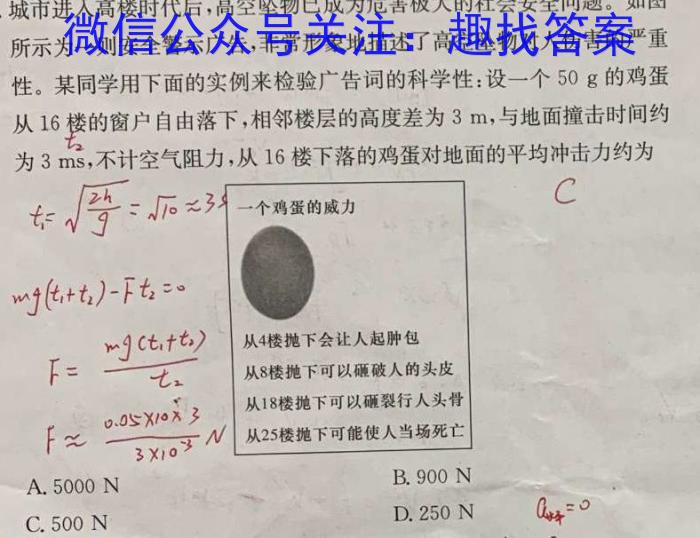 城市进入高楼时代后,高空坠物已成为危害极大的社会安全问题。如图
微信公众号关注:趣找答案
所示为一则安全警示广告,非常形象地描述了高空坠物对人伤害的严重
性。某同学用下面的实例来检验广告词的科学性:设一个 50 g 的鸡蛋
从 16 楼的窗户自由落下,相邻楼层的高度差为 3 m,与地面撞击时间约
t₂
为 3 ms,不计空气阻力,从 16 楼下落的鸡蛋对地面的平均冲击力约为
C
t₁=√(2h/g)=√10≈3s
一个鸡蛋的威力
mg(t₁+t₂)-Ft₂=0
F=mg(t₁+t₂)/t₂
F≈0.05×10×3/3×10⁻³ N
从4楼抛下会让人起肿包
从8楼抛下可以砸破人的头皮
从18楼抛下可以砸裂行人头骨
从25楼抛下可能使人当场死亡
A. 5000 N
B. 900 N
C. 500 N
D. 250 N
=0